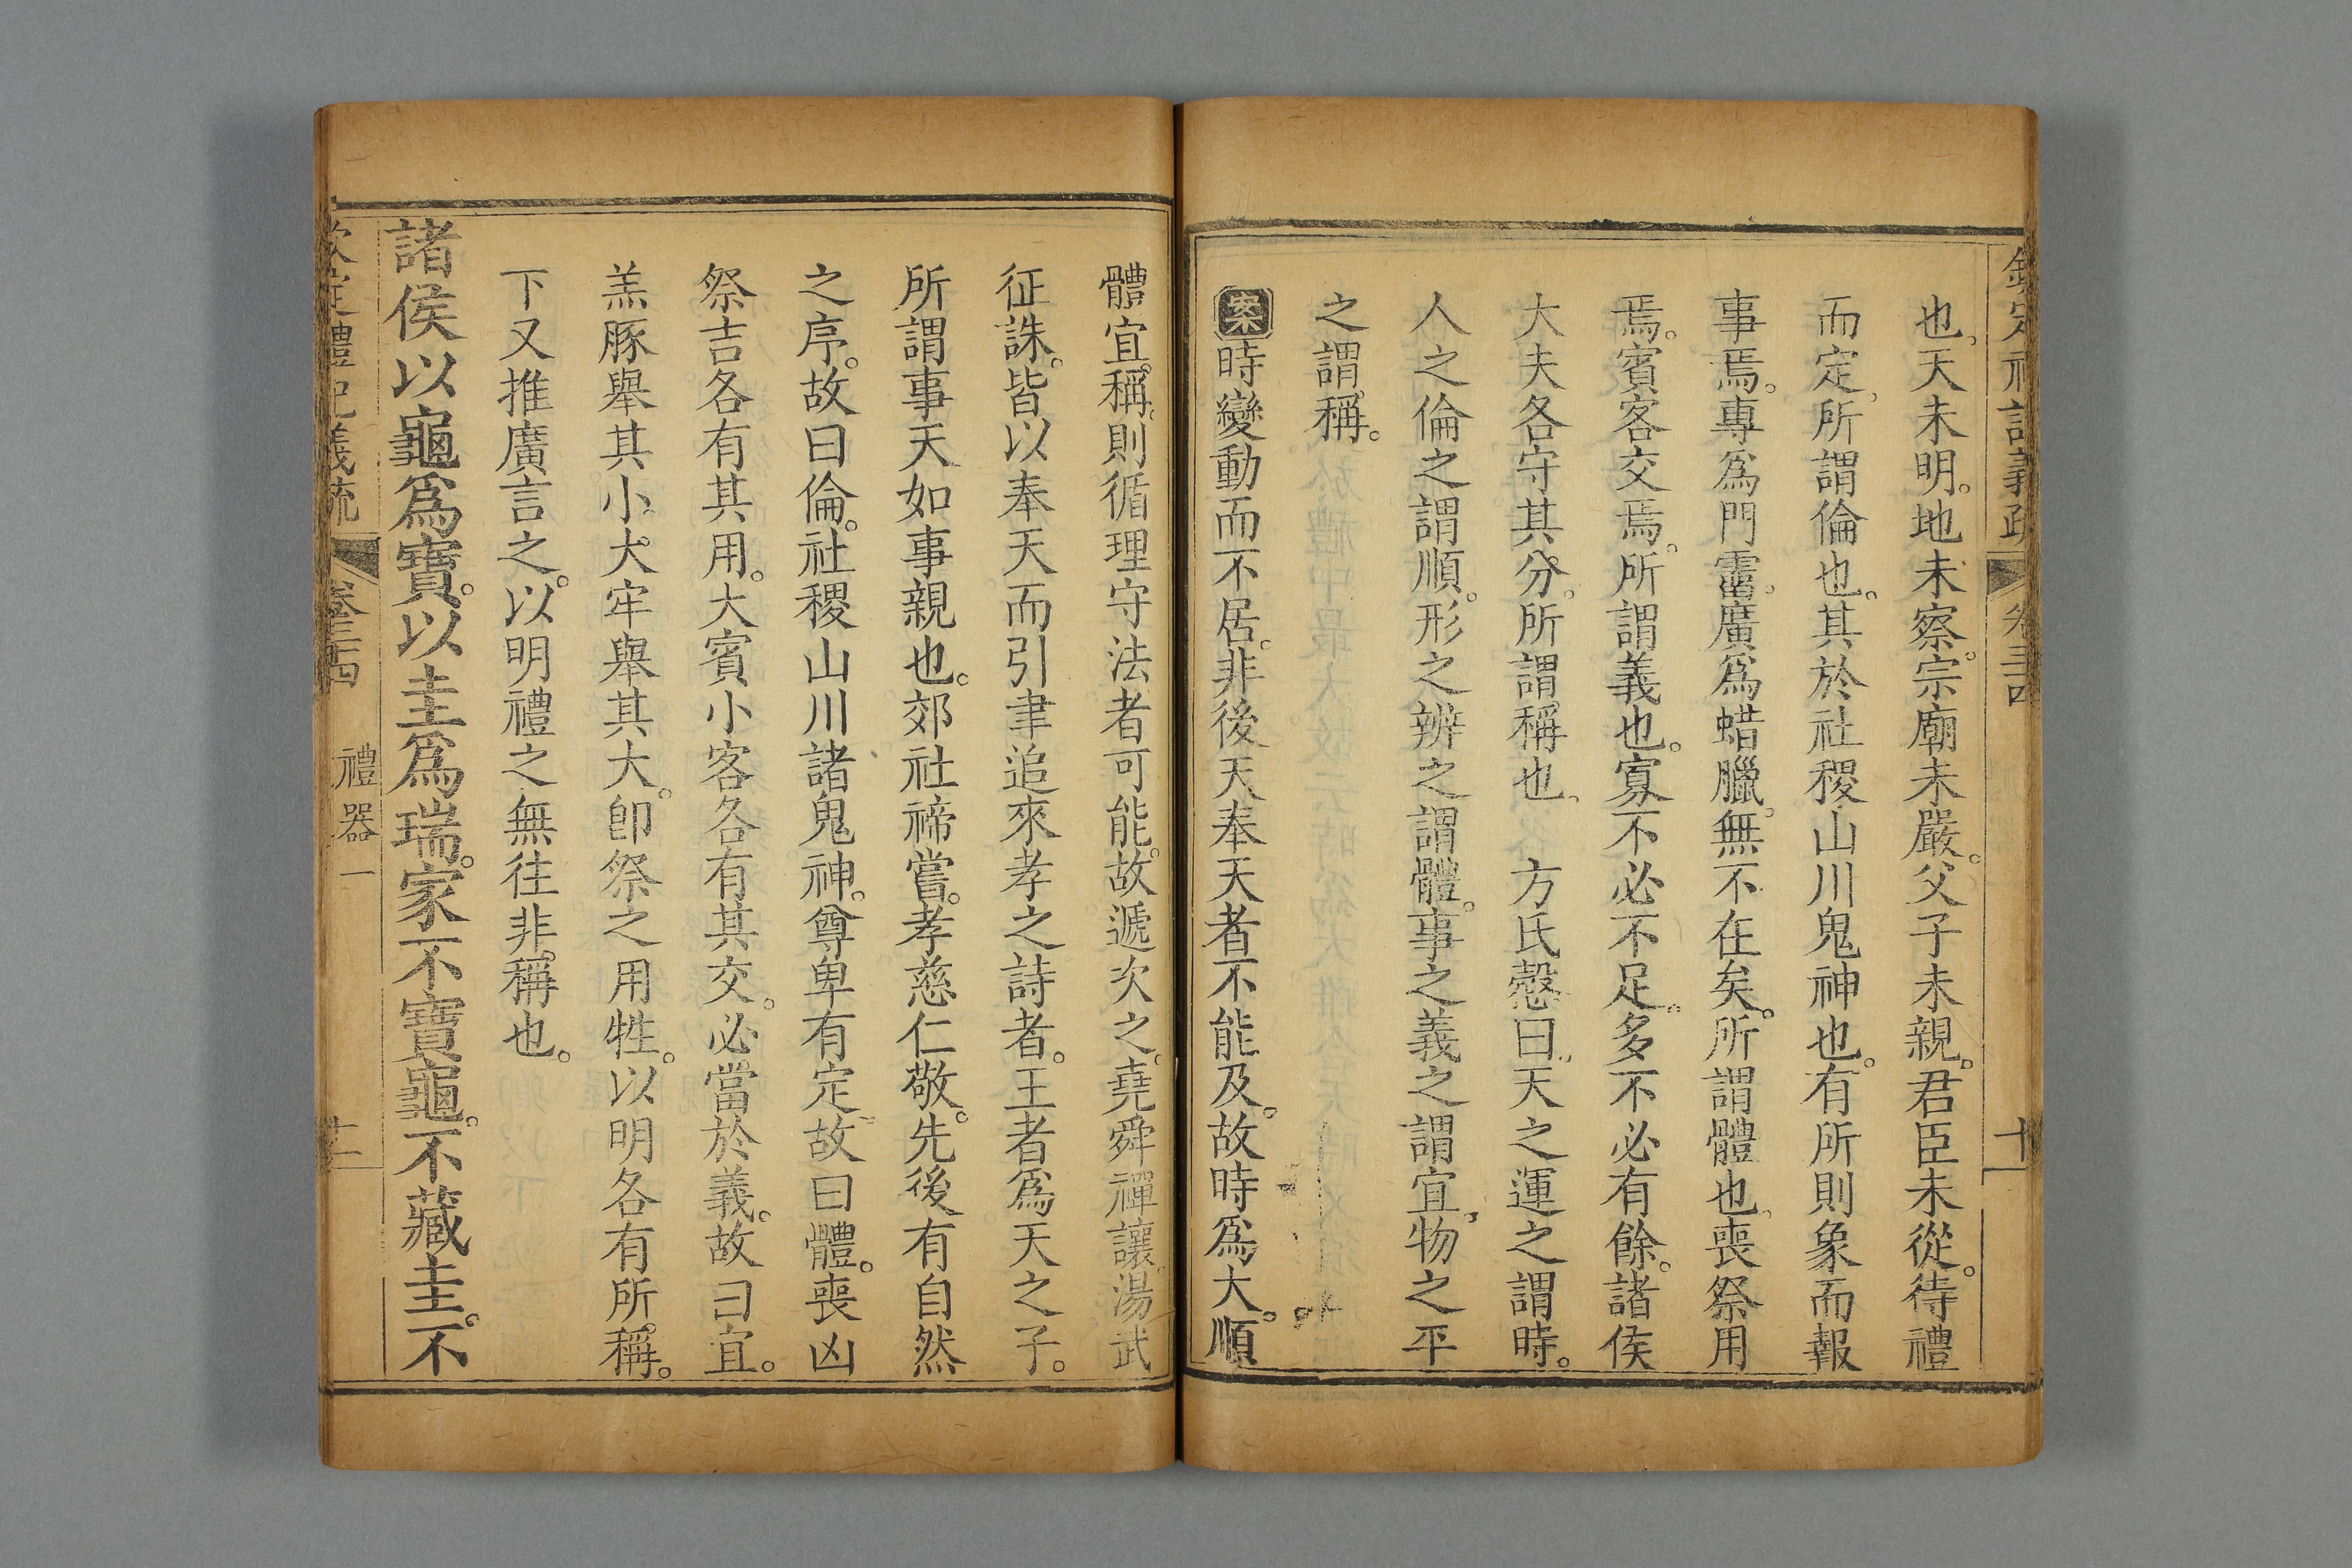 欽定禮記義疏 卷三十四 十一
也天未明。地未察。宗廟未嚴。父子未親。君臣未從。待禮
而定。所謂倫也。其於社稷山川鬼神也。有所則象而報
事焉。專爲門霤。廣爲蜡臘。無不在矣。所謂體也。喪祭用
焉。賓客交焉。所謂義也。寡不必不足。多不必有餘。諸侯
大夫各守其分。所謂稱也。 方氏慤曰。天之運之謂時。
人之倫之謂順。形之辨之謂體。事之義之謂宜。物之平
之謂稱。
案時變動而不居。非後天奉天者不能及。故時爲大。順
體宜。稱。則循理守法者可能。故遞次之。堯舜禪讓。湯武
征誅。皆以奉天而引聿追來孝之詩者。王者爲天之子。
所謂事天如事親也。郊社禘嘗。孝慈仁敬。先後有自然
之序。故曰倫。社稷山川諸鬼神。尊卑有定故曰體。喪凶
祭吉各有其用。大賓小客各有其交。必當於義。故曰宜。
羔豚舉其小。大牢舉其大。卽祭之用牲。以明各有所稱。
下又推廣言之。以明禮之無往非稱也。
諸侯以龜爲寶。以圭爲瑞。家不寶龜。不藏圭。不
欽定禮記義疏 卷三十四 禮器一 十二